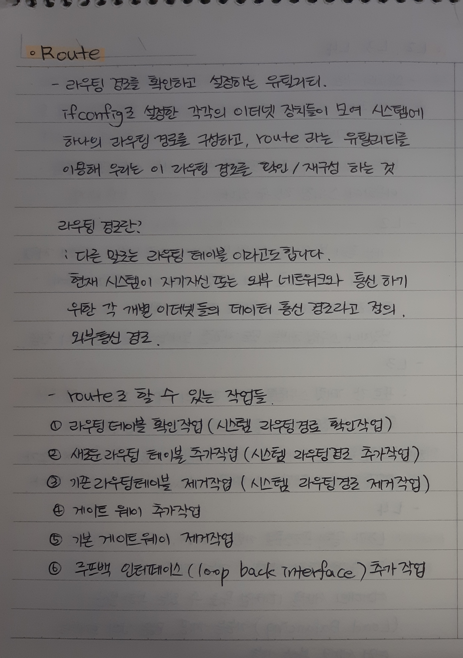 ◦ Route
- 라우팅 경로를 확인하고 설정하는 유틸리티.
ifconfig로 설정한 각각의 이더넷 장치들이 모여 시스템에
하나의 라우팅 경로를 구성하고, route 라는 유틸리티를
이용해 우리는 이 라우팅 경로를 확인 / 재구성 하는 것
라우팅 경로란?
: 다른 말로는 라우팅 테이블 이라고도합니다.
현재 시스템이 자기자신 또는 외부 네트워크와 통신 하기
위한 각 개별 이더넷들의 데이터 통신 경로라고 정의.
외부통신 경로.
- route로 할 수 있는 작업들.
① 라우팅 테이블 확인작업 (시스템 라우팅경로 확인작업)
② 새로운 라우팅 테이블 추가작업 (시스템 라우팅경로 추가작업)
③ 기존 라우팅테이블 제거작업 (시스템 라우팅경로 제거작업)
④ 게이트 웨이 추가작업
⑤ 기본 게이트웨이 제거작업
⑥ 루프백 인터페이스 (loop back interface) 추가작업